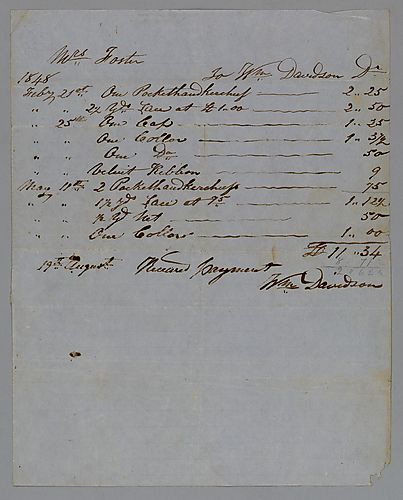 Mrs Foster
1848 To Wm Davidson Dr
Feby 21st. One Pockethandkerchief 2 .. 25
" " 2½ Yds Lace at $1..00 2 .. 50
" 25th One Cap 1 .. 35
" " One Collar 1 .. 37½
" " One Do 50
" " Velvet Ribbon 9
May 11th 2 Pockethandkerchiefs 75
" " 1½ Yds Lace at 75 1 .. 12½
" " ½ Yd Net 50
" " One Collar 1 .. 00
$ 11 .. 34
19th August Received Payment
Wm Davidson